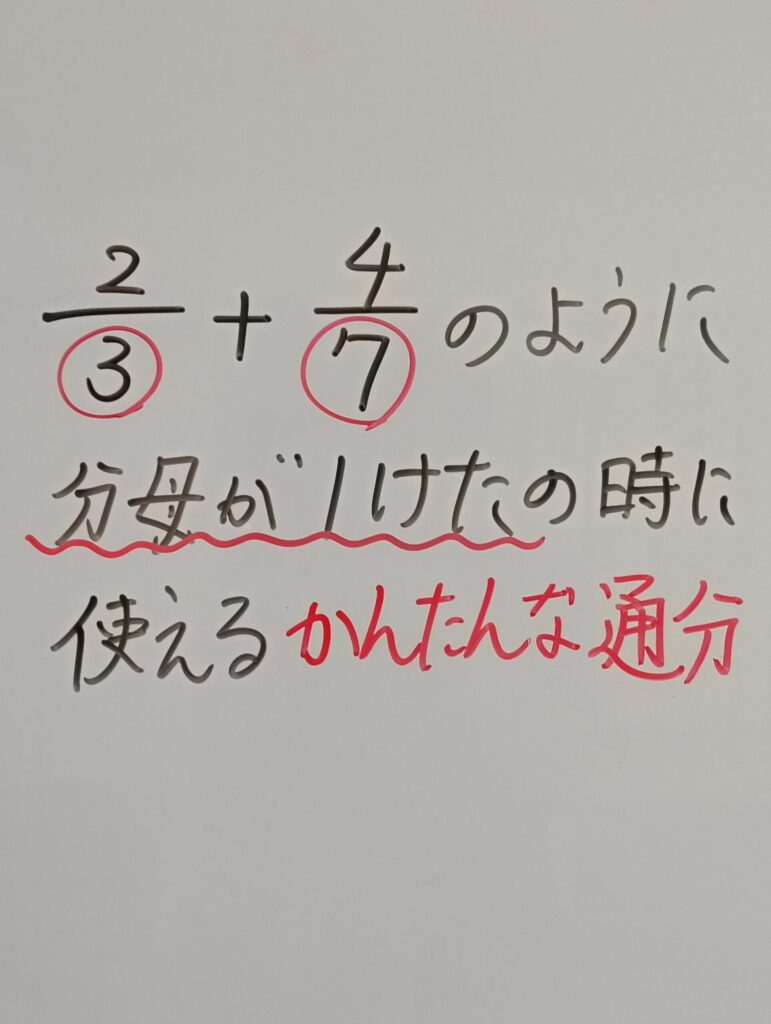 2/3 + 4/7 のように
分母が1けたの時に
使えるかんたんな通分